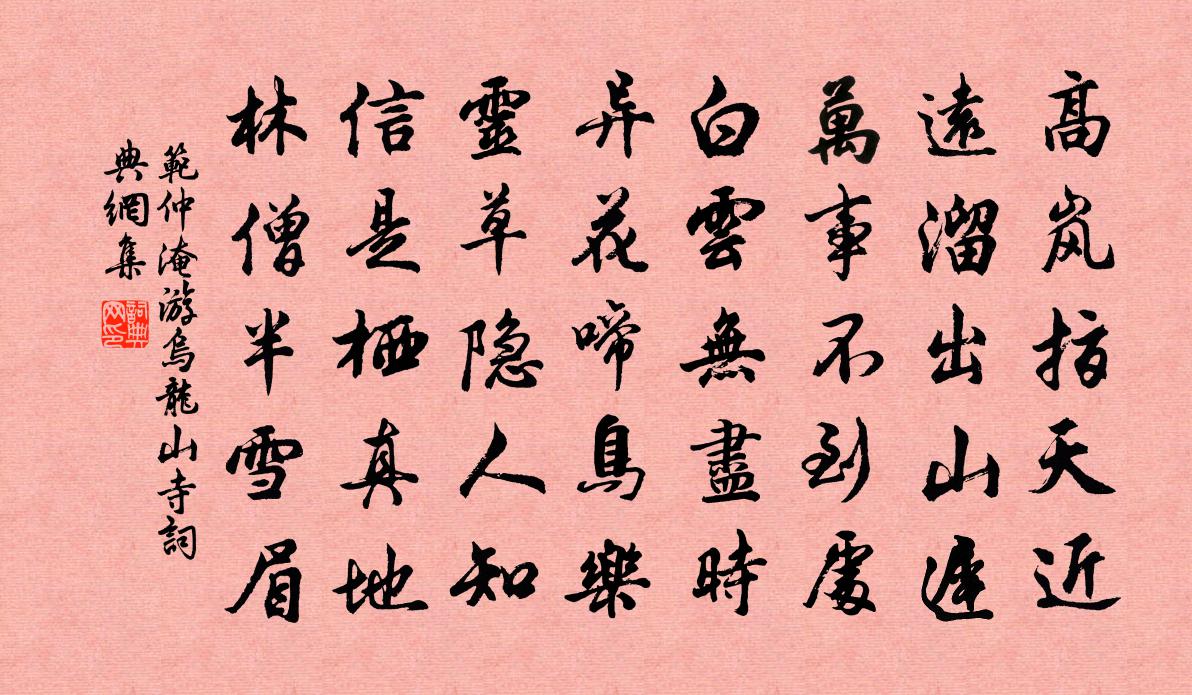 高岚指天近
遠溜出山遲
萬事不到處
白雲無盡時
异花啼鳥樂
靈草隐人知
信是栖真地
林僧半雪眉
範仲淹游烏龍山寺詞
典網集
詞典网印